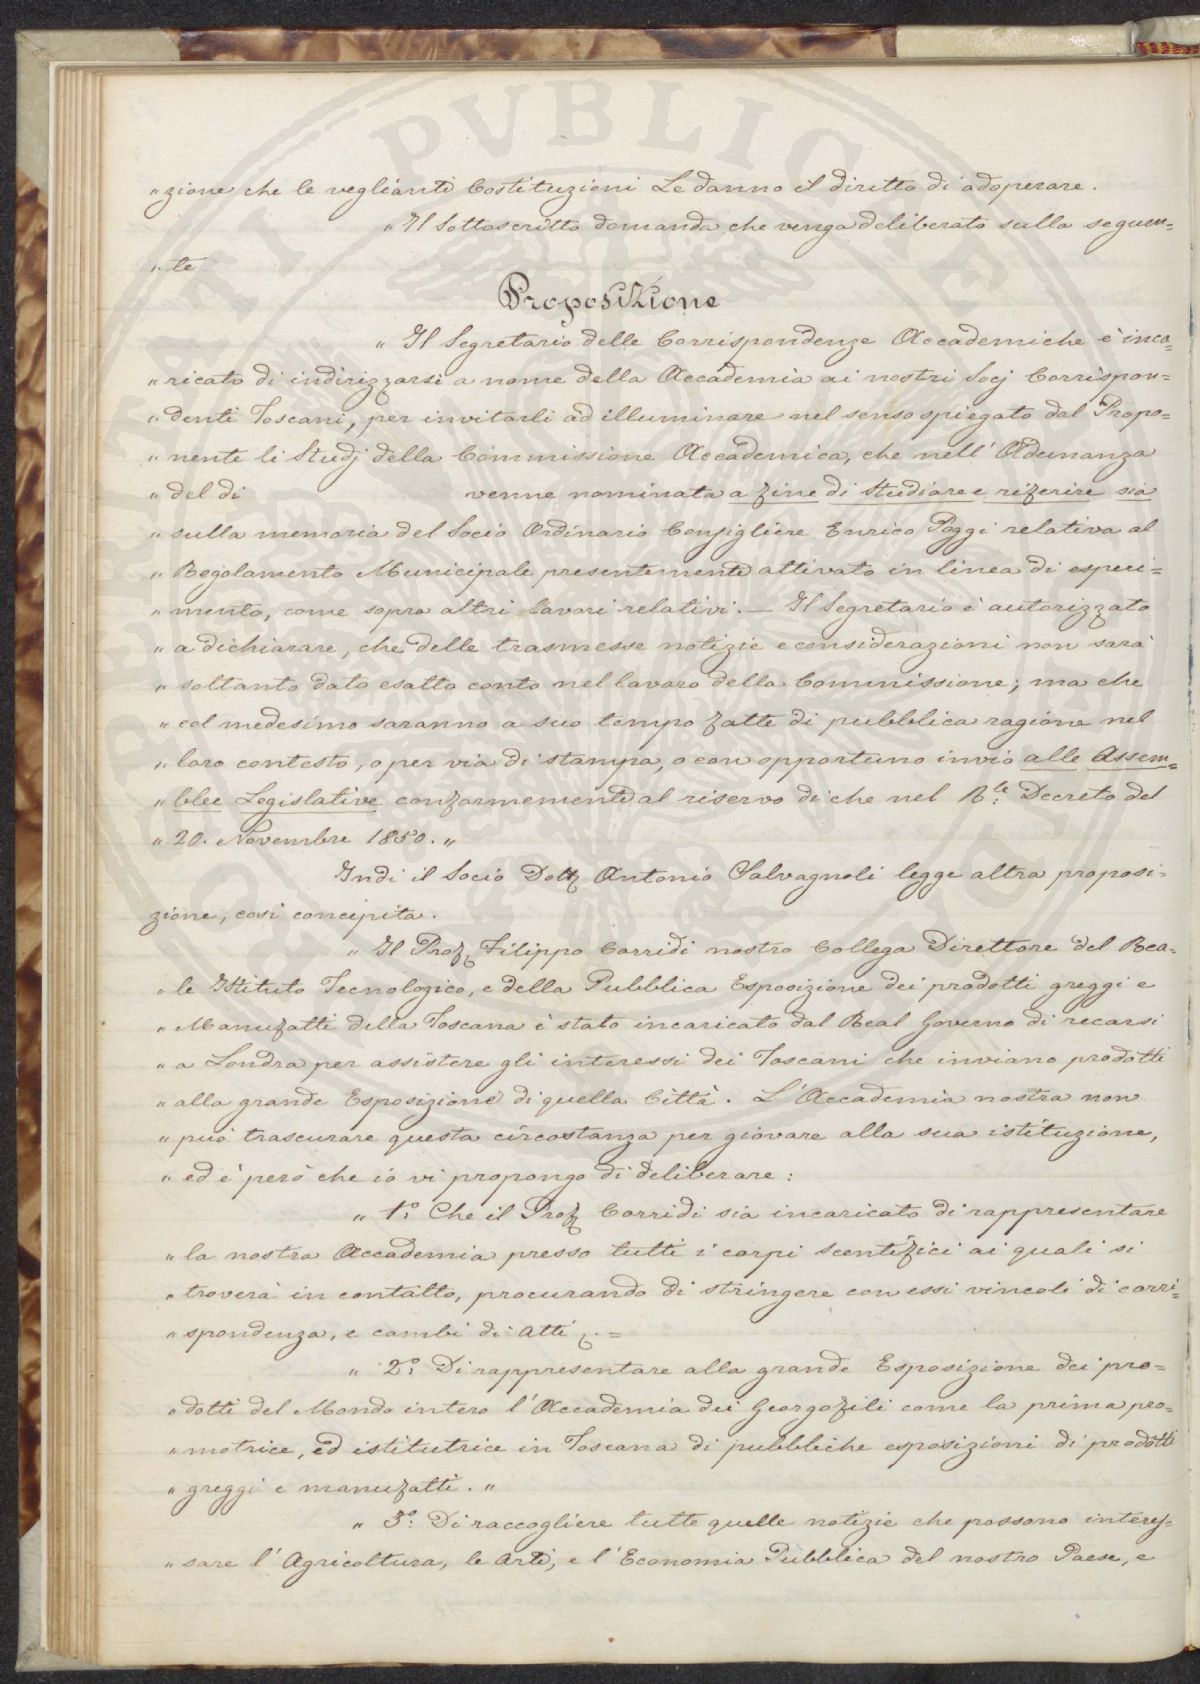 " zione che le veglianti Costituzioni Le danno il diritto di adoperare.
" Il Sottoscritto domanda che venga deliberato sulla seguen=
" te
Proposizione
" Il Segretario delle Corrispondenze Accademiche è inca=
" ricato di indirizzarsi a nome della Accademia ai nostri Socj Corrispon=
" denti Toscani, per invitarli ad illuminare nel senso spiegato dal Propo=
" nente li Studj della Commissione Accademica, che nell'Adunanza
" del dì venne nominata a fine di studiare e riferire sia
" sulla memoria del Socio Ordinario Consigliere Enrico Poggi relativa al
" Regolamento Municipale presentemente attivato in linea di esperi=
" mento, come sopra altri lavori relativi. — Il Segretario è autorizzato
" a dichiarare, che delle trasmesse notizie e considerazioni non sarà
" soltanto dato esatto conto nel lavoro della Commissione; ma che
" col medesimo saranno a suo tempo fatte di pubblica ragione nel
" loro contesto, o per via di stampa, o con opportuno invio alle Assem=
" blee Legislative conformemente al riservo di che nel R.le Decreto del
" 20. Novembre 1850. "
Indi il Socio Dott. Antonio Salvagnoli legge altra proposi=
zione, così concepita.
" Il Prof. Filippo Corridi nostro Collega Direttore del Rea=
" le Istituto Tecnologico, e della Pubblica Esposizione dei prodotti greggi e
" Manufatti della Toscana è stato incaricato dal Real Governo di recarsi
" a Londra per assistere gli interessi dei Toscani che inviano prodotti
" alla grande Esposizione di quella Città. L'Accademia nostra non
" può trascurare questa circostanza per giovare alla sua istituzione,
" ed è però che io vi propongo di deliberare:
" 1.° Che il Prof. Corridi sia incaricato di rappresentare
" la nostra Accademia presso tutti i corpi scentifici ai quali si
" troverà in contatto, procurando di stringere con essi vincoli di corri=
" spondenza, e cambi di Atti. =
" 2.° Di rappresentare alla grande Esposizione dei pro=
" dotti del Mondo intero l'Accademia dei Georgofili come la prima pro=
" motrice, ed istitutrice in Toscana di pubbliche esposizioni di prodotti
" greggi e manufatti. "
" 3.° Di raccogliere tutte quelle notizie che possono interes=
" sare l'Agricoltura, le Arti, e l'Economia Pubblica del nostro Paese, e